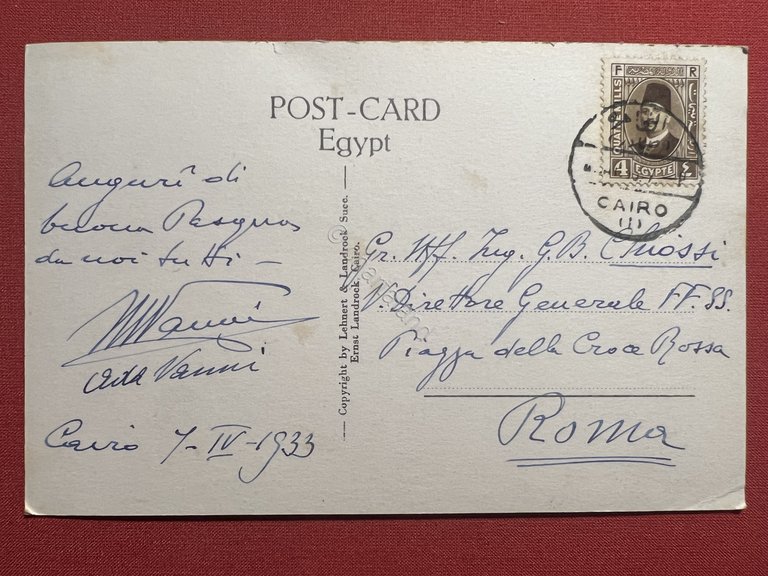 POST-CARD
Egypt
Auguri di
buona Pasqua
da noi tutti —
Vanni
Ada Vanni
Cairo 7-IV-1933
Copyright by Lehnert & Landrock Succ.
Ernst Landrock, Cairo.
F R
QUATRE MILLS
4 EGYPTE ٤
CAIRO
(1)
Gr. Uff. Ing. G.B. Chiossi
V. Direttore Generale FF.SS.
Piazza della Croce Rossa
Roma